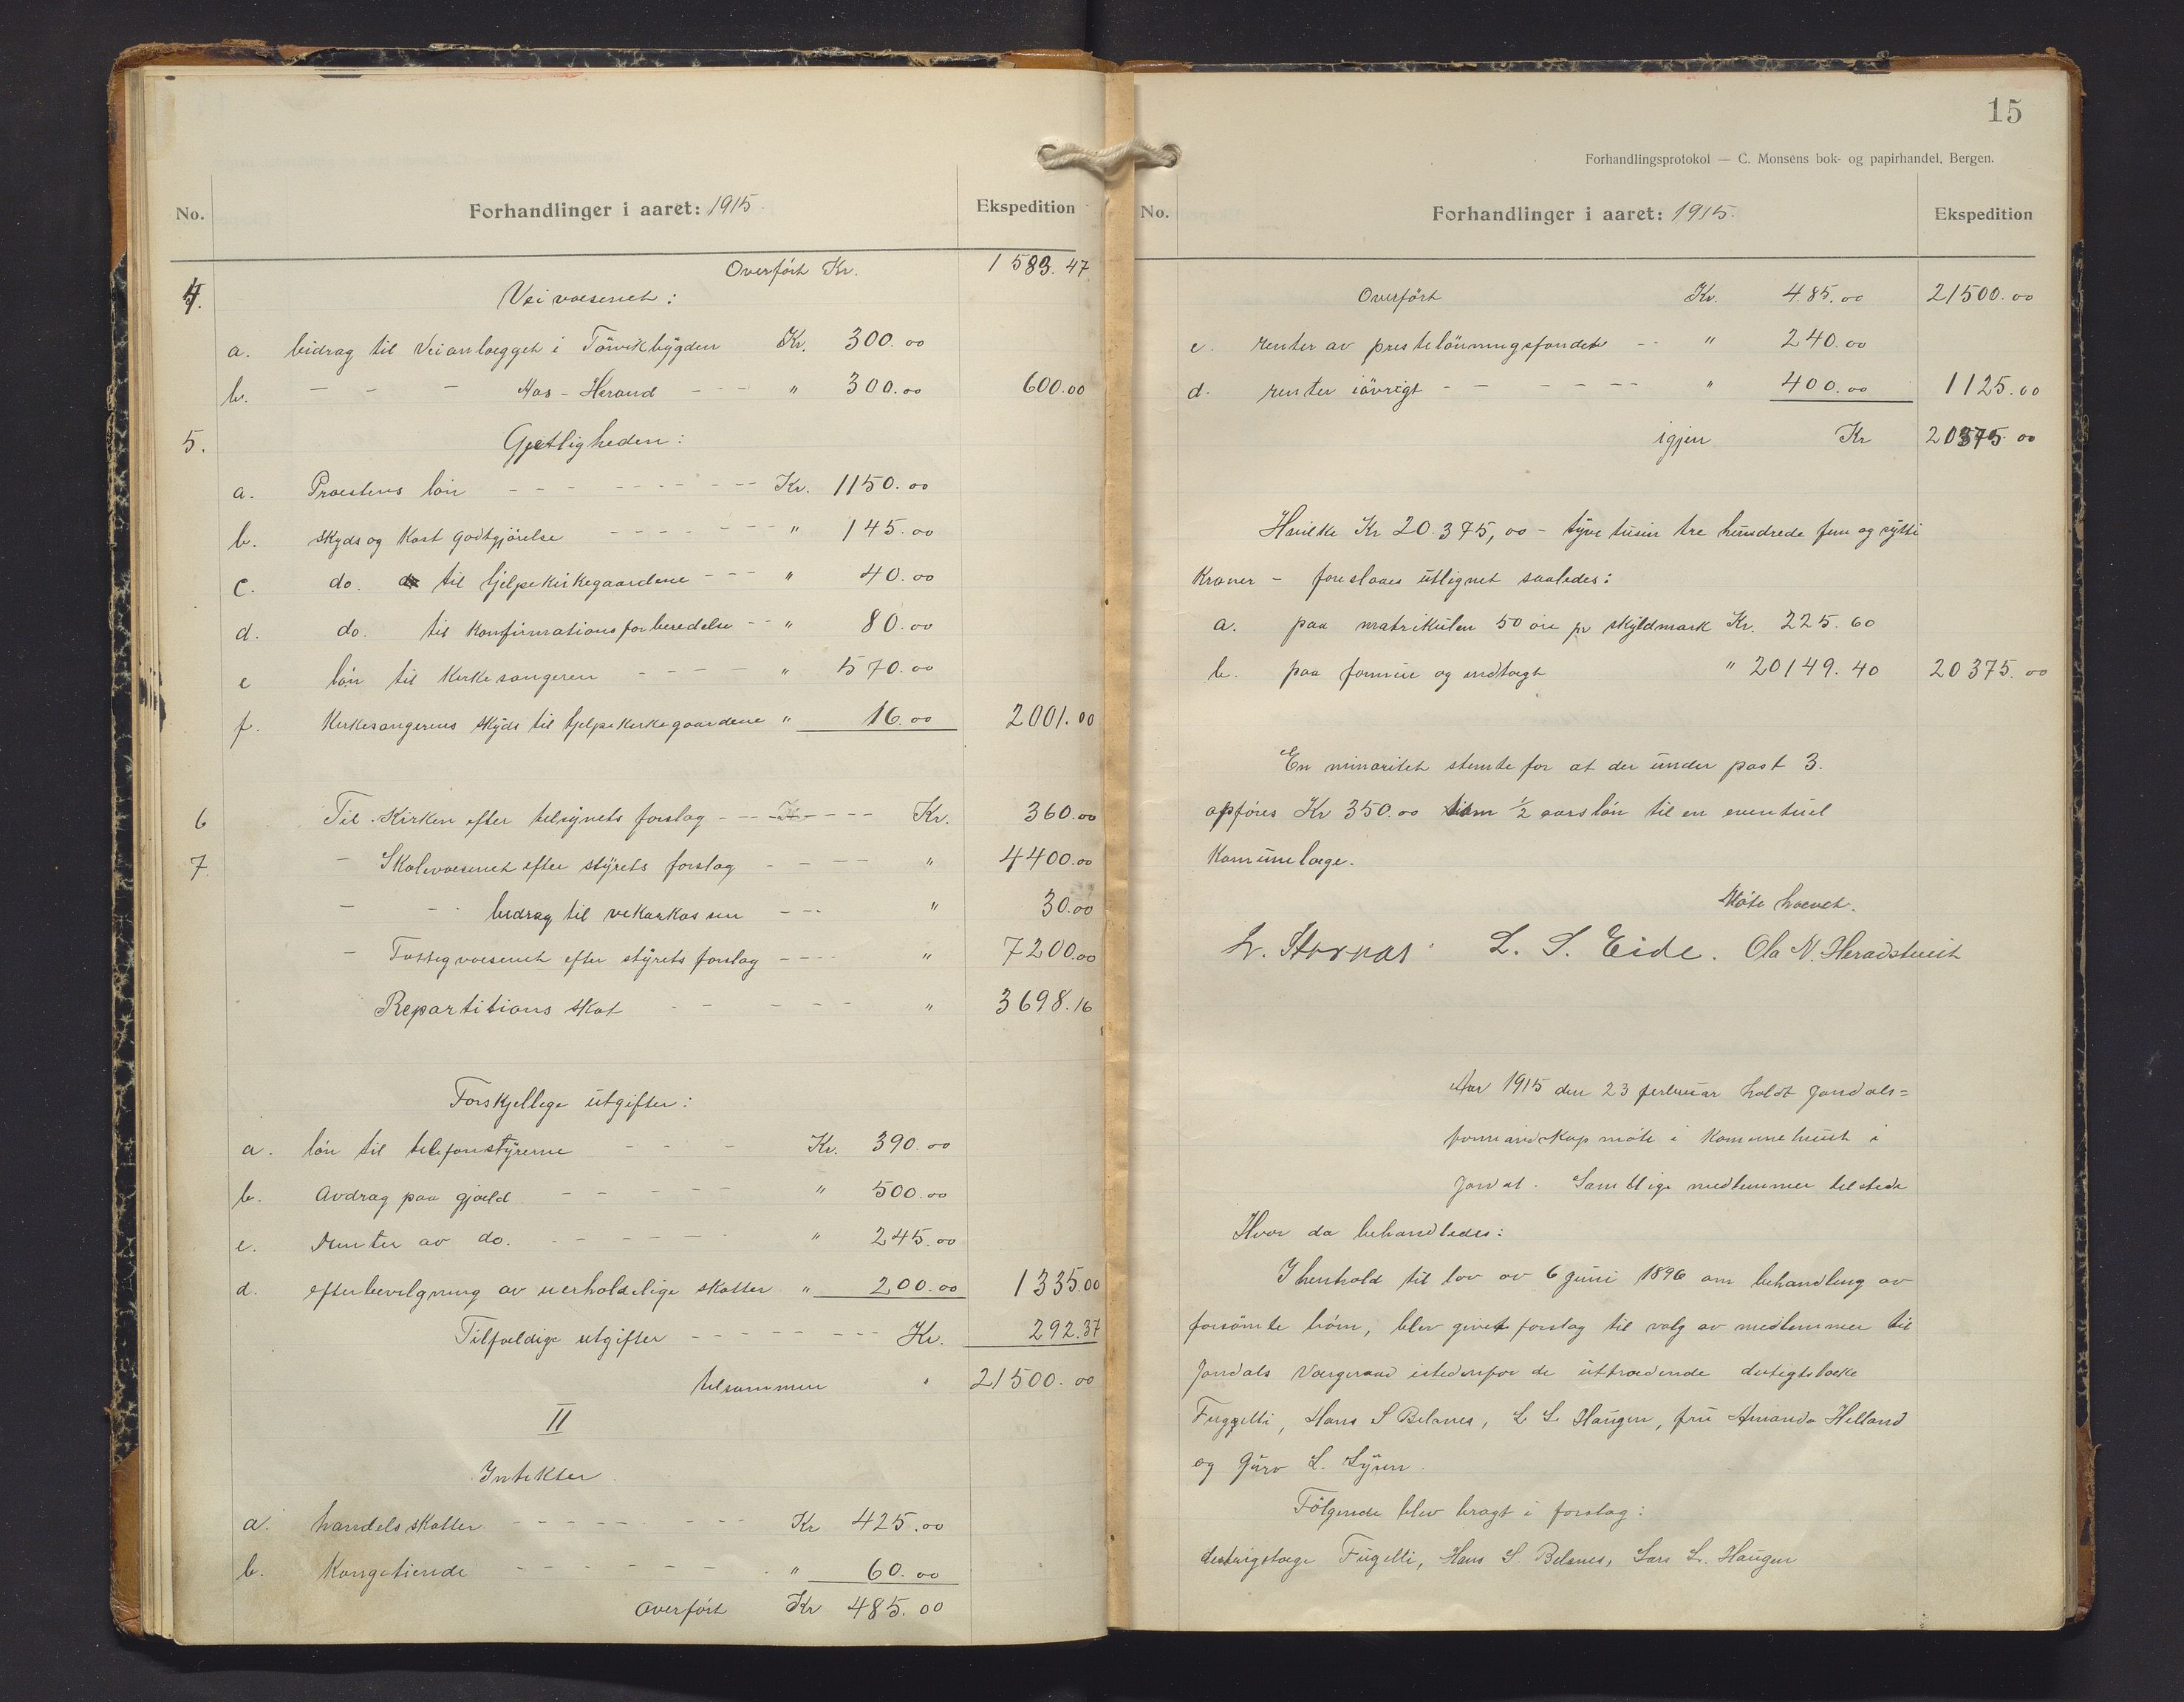 No.
Forhandlinger i aaret: 1915.
Ekspedition
Overført Kr. 1583.47
4. Veivæsenet:
a. bidrag til Veianlægget i Törvikbygden Kr. 300.00
b. – – – Aas – Herand – – – " 300.00 600.00
5. Gjestligheden:
a. Præstens lön – – – – – – – – – Kr. 1150.00
b. skyds og Kost godtgjörelse – – – – – – – " 145.00
c. do. til hjelpekirkegaardene – – – " 40.00
d. do. til Konfirmationsforberedelse – – " 80.00
e lön til Kirkesangeren – – – – " 570.00
f. Kirkesangerens skyds til hjelpekirkegaardene " 16.00 2001.00
6 Til Kirken efter tilsynets forslag – – – – – – – Kr. 360.00
7. – Skolevæsenet efter styrets forslag – – – – " 4400.00
– – – bidrag til vekarkassen – – – " 30.00
– Fattigvæsenet efter styrets forslag – – – – " 7200.00
Repartitions skat – – – – – " 3698.16
Forskjellige utgifter:
a. lön til telefonstyrerne – – – Kr. 390.00
b. Avdrag paa gjæld – – – – – " 500.00
c. renter av do. – – – – – – " 245.00
d. efterbevilgning av uerholdelige skatter " 200.00 1335.00
Tilfældige utgifter – – – – – – – Kr. 292.37
tilsammen " 21500.00
II
Intekter
a. handelsskatter – – – – – – – – Kr 425.00
b. Kongetiende – – – – – – – " 60.00
Overført Kr 485.00
15
Forhandlingsprotokol — C. Monsens bok- og papirhandel, Bergen.
No.
Forhandlinger i aaret: 1915.
Ekspedition
Overført Kr. 485.00 21500.00
c. renter av prestelönningsfondet – – " 240.00
d. renter iövrigt – – – – – – " 400.00 1125.00
igjen Kr 20375.00
Hvilke Kr 20.375,00 – tyve tusin tre hundrede fem og sytti
Kroner – foreslaaes utlignet saaledes:
a. paa matrikulen 50 öre pr skyldmark Kr. 225.60
b. paa formue og indtægt " 20149.40 20375.00
En minoritet stemte for at der under post 3.
opföres Kr 350.00 som ½ aars lön til en eventuel
Kommunelæge.
Möte hævet.
L. S. Eide. Ola N. Heradstveit
Aar 1915 den 23 februar holdt Jondals=
formandskap möte i Komunehuset i
Jondal. Samtlige medlemmer tilstede
Hvor da behandledes:
I henhold til lov av 6 juni 1896 om behandling av
forsömte börn, blev givet forslag til valg av medlemmer til
Jondals Værgeraad istedenfor de uttrædende distigtslæke
Fuggelli, Hans S Belsnes, L L Haugen, fru Amanda Helland
og Guro L. Lyren.
Fölgende blev bragt i forslag:
distrigtslæge Fugelli, Hans S. Belsnes, Lars L. Haugen